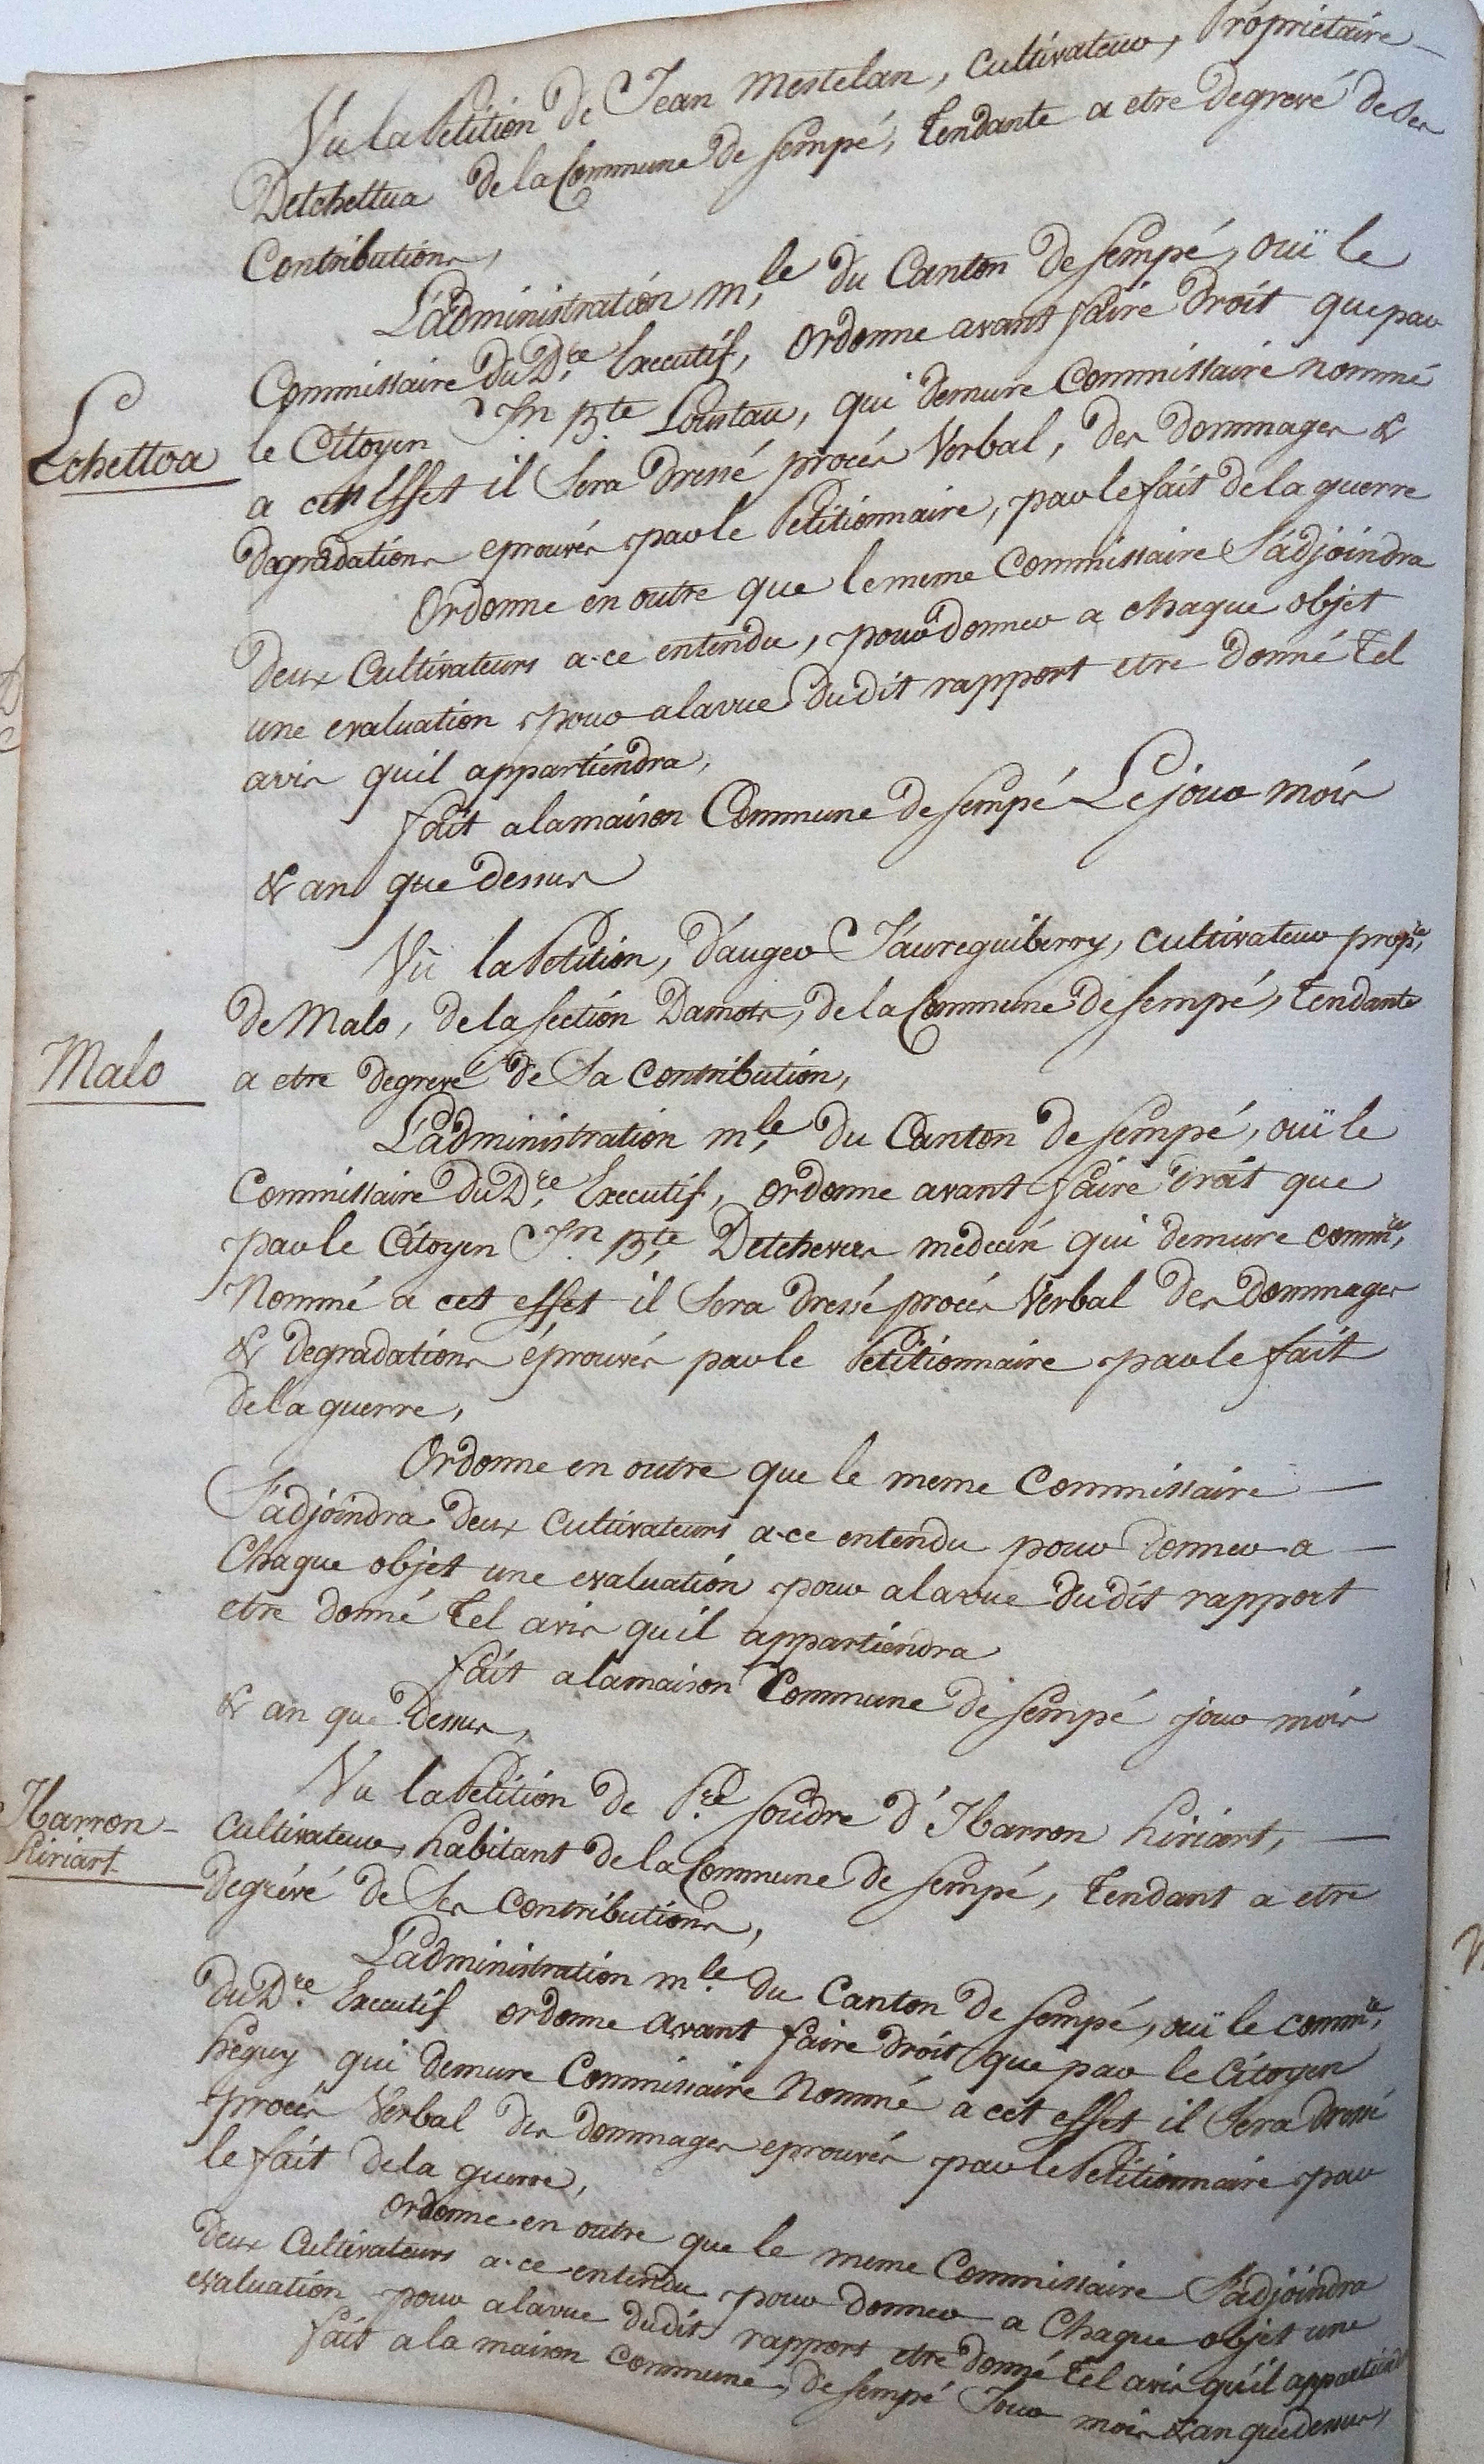 Vu la Petition de Jean Mestelan, Cultivateur, Propriétaire
Detchettua de la Commune de Sempé, Tendante a etre degrevé de Ses
Contributions,
L'administration m.le du Canton de Sempé, ouï le
Commissaire du D.re Executif, Ordonne avant faire Droit que par
Echettoa
le Citoyen Jn Bte Loustau, qui demure Commissaire nommé
a cet Effet il Sera Dressé procés Verbal, des dommages &
degradations eprouvés par le Petitionnaire, par le fait de la guerre
Ordonne en outre que le meme Commissaire S'adjoindra
deux Cultivateurs a-ce entendu, pour donner a chaque objet
une evaluation pour a la vue du dit rapport etre Donné Tel
avis qu'il appartiendra,
fait a la maison Commune de Sempé Le jour mois
& an que dessus
Vû la Petition, D'auger Jaureguiberry, cultivateur prop.re
de Malo, de la Section Damots, de la Commune de Sempé, Tendante
Malo
a etre degrevé de Sa Contribution,
L'administration m.le du Canton de Sempé, ouï le
Commissaire du D.re Executif, ordonne avant faire Droit que
par le Citoyen Jn Bte Detchevers medecin qui demure comm.re
Nommé a cet effet il Sera dressé procés Verbal Des Dommages
& degradations éprouvés par le Petitionnaire par le fait
de la guerre,
Ordonne en outre que le meme Commissaire —
S'adjoindra deux Cultivateurs a-ce entendu pour donner a —
Chaque objet une evaluation pour a la vue du dit rapport
etre donné Tel avis qu'il appartiendra
fait a la maison Commune de Sempé jour mois
& an que Dessus,
Vu la Petition de P.re Soudre d'Harron hiriart, —
Harron-
hiriart
Cultivateur, habitant de la Commune de Sempé, Tendant a etre
degrévé de Ses Contributions,
L'administration m.le du Canton de Sempé, ouï le comm.re
du D.re Executif ordonne avant faire droit que par le Citoyen
héguy qui demure Commissaire Nommé a cet effet il Sera dressé
procés Verbal des dommages eprouvés par le Petitionnaire par
le fait de la guerre,
Ordonne en outre que le meme Commissaire S'adjoindra
deux Cultivateurs a-ce entendu pour donner a Chaque objet une
evaluation pour a la vue du dit rapport etre donné Tel avis qu'il appartiend
fait a la maison Commune de Sempé Jour mois & an que dessus,